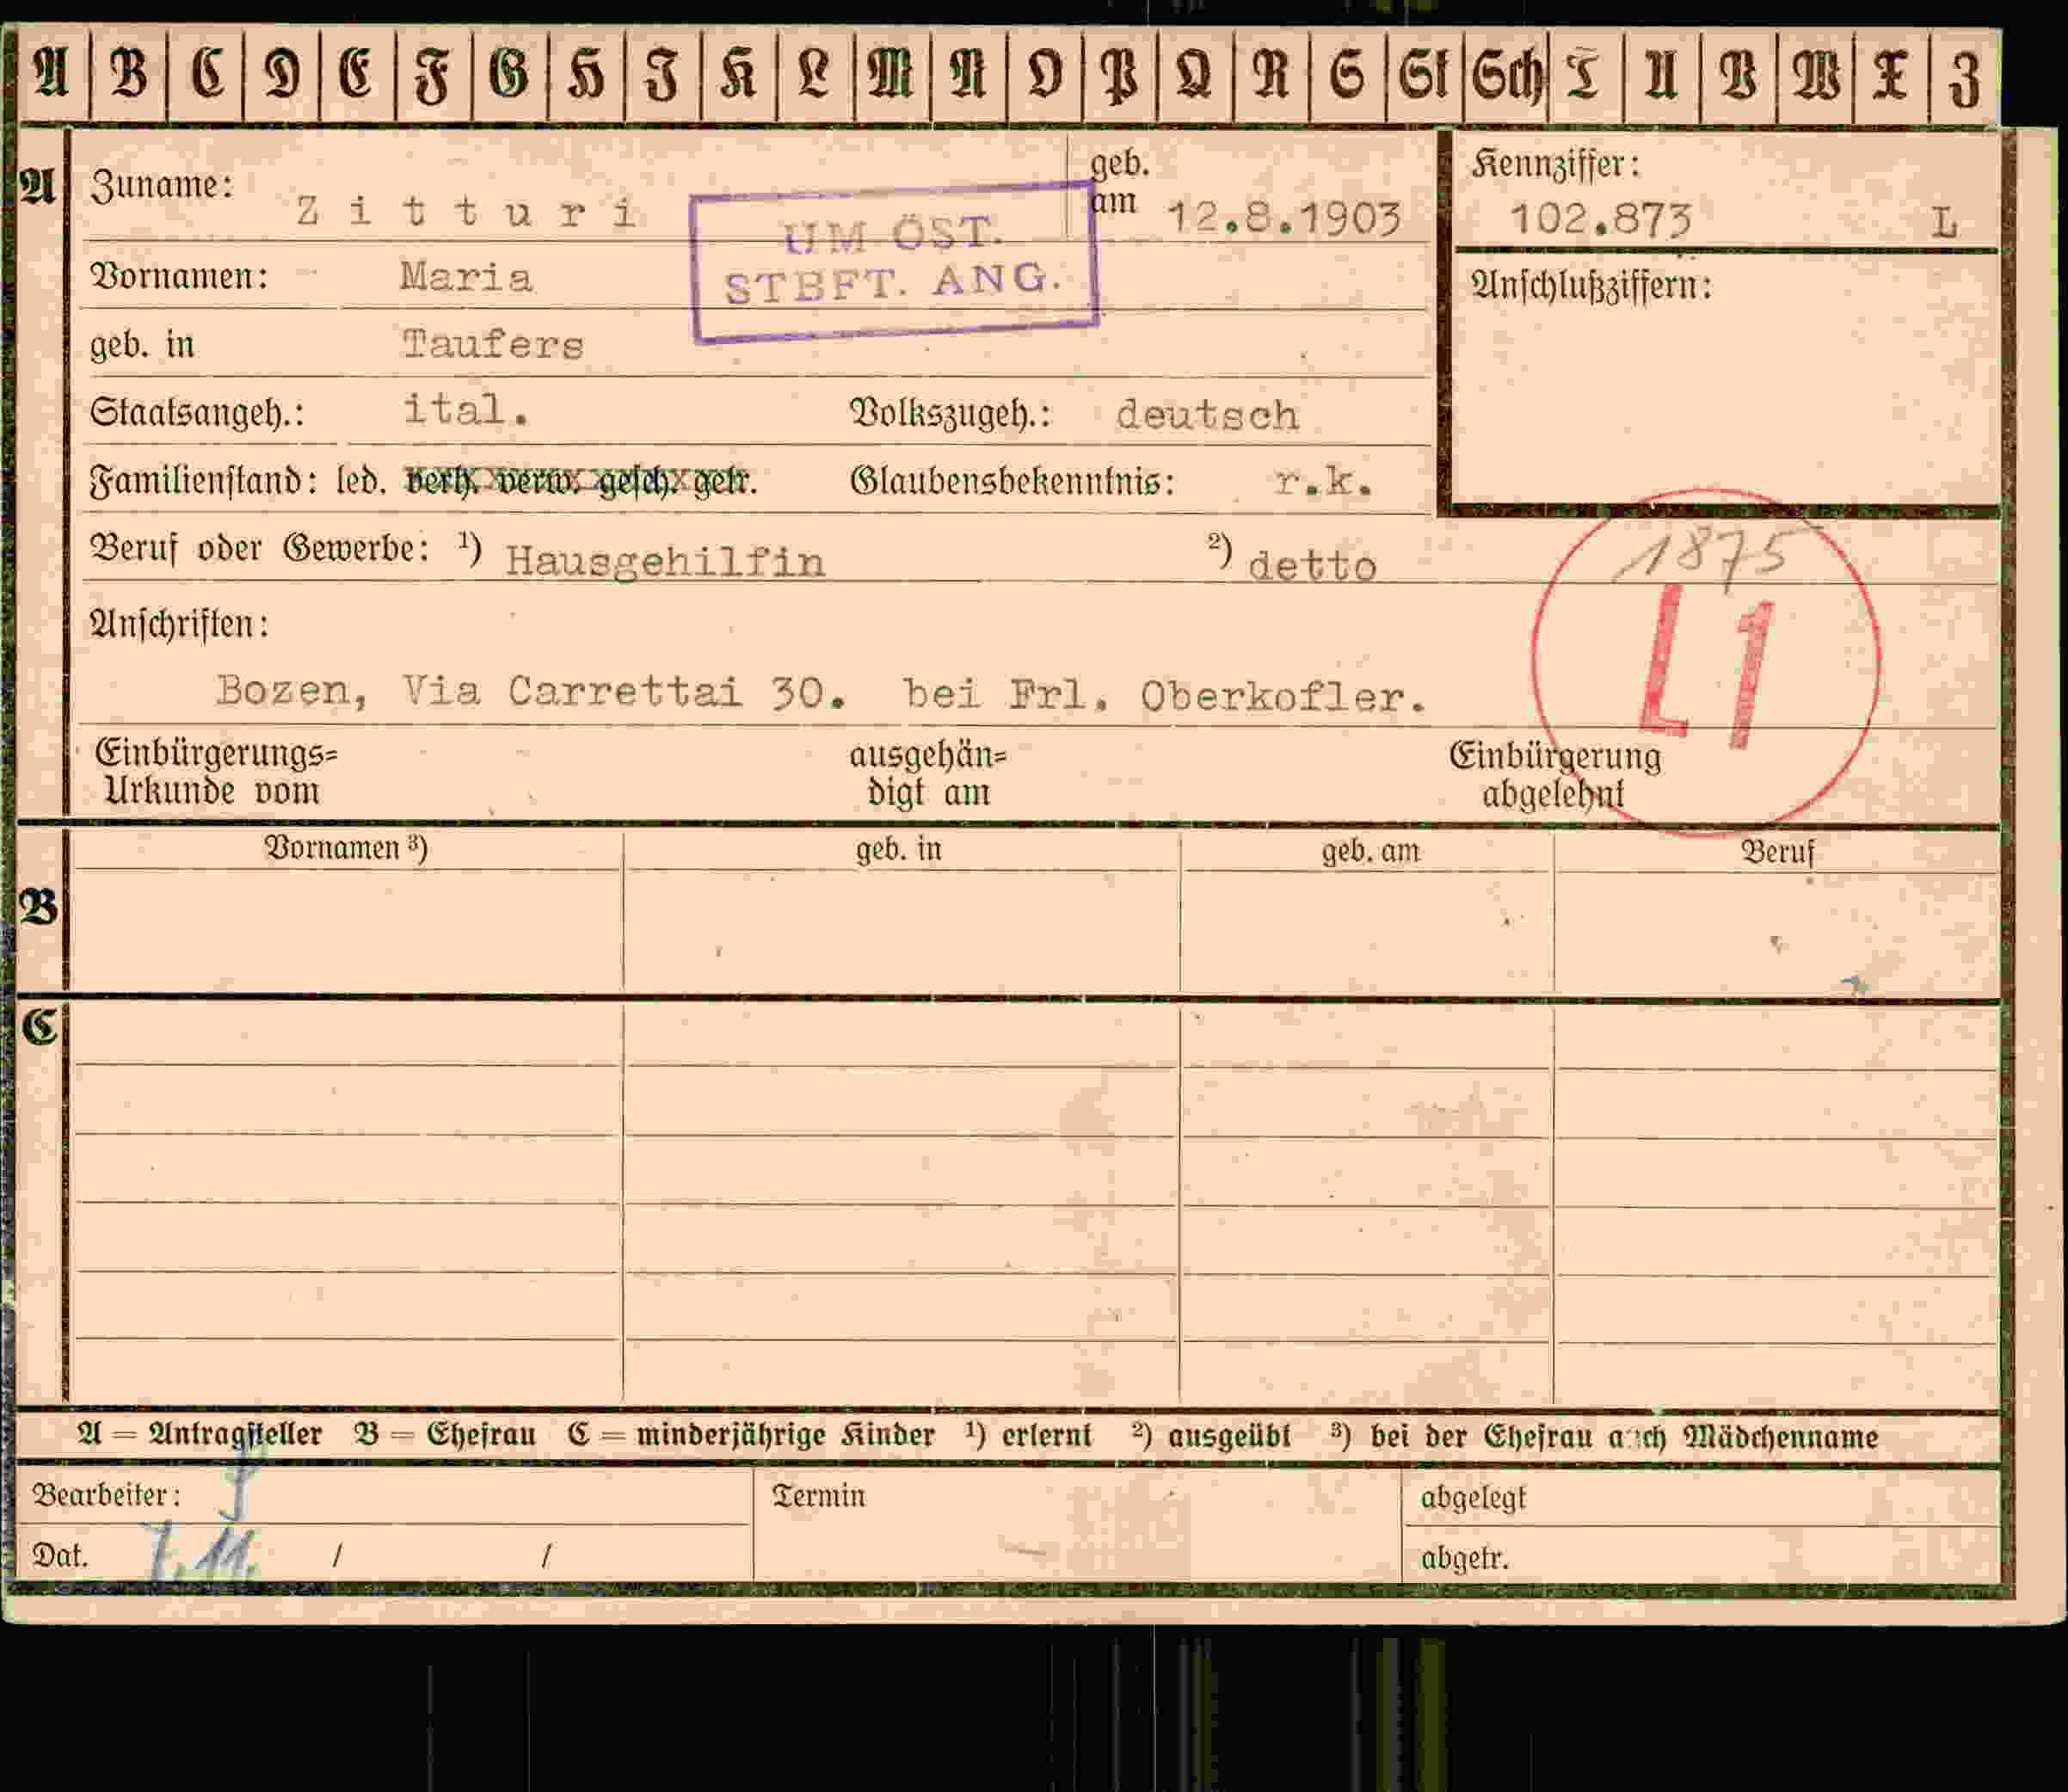 A B C D E F G H J K L M N O P Q R S St Sch T U V W X Z
A
Zuname: Zitturi geb. am 12.8.1903
Kennziffer: 102.873 L
UM ÖST.
STBFT. ANG.
Vornamen: Maria
Anschlußziffern:
geb. in Taufers
Staatsangeh.: ital. Volkszugeh.: deutsch
Familienstand: led. verh. verw. gesch. getr. Glaubensbekenntnis: r.k.
Beruf oder Gewerbe: ¹) Hausgehilfin ²) detto
1875
L1
Anschriften:
Bozen, Via Carrettai 30. bei Frl. Oberkofler.
Einbürgerungs= ausgehän= Einbürgerung
Urkunde vom digt am abgelehnt
Vornamen ³) geb. in geb. am Beruf
B
C
A = Antragsteller B = Ehefrau C = minderjährige Kinder ¹) erlernt ²) ausgeübt ³) bei der Ehefrau auch Mädchenname
Bearbeiter: Termin abgelegt
Dat. 7.11. / / abgetr.